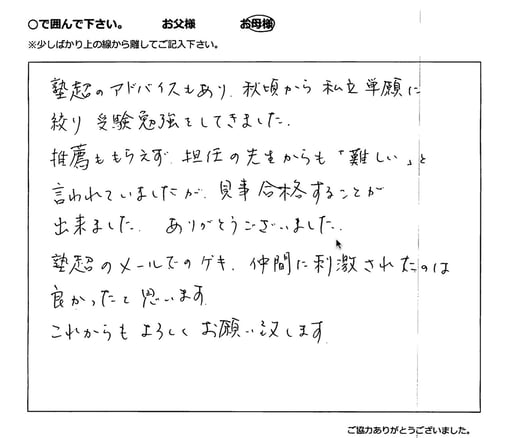 ○で囲んで下さい。 お父様 お母様
※少しばかり上の線から離してご記入下さい。
塾超のアドバイスもあり、秋頃から私立単願に
絞り受験勉強をしてきました。
推薦ももらえず、担任の先生からも「難しい」と
言われていましたが、見事合格することが
出来ました。ありがとうございました。
塾超のメールでのゲキ、仲間に刺激されたのは
良かったと思います。
これからもよろしくお願い致します。
ご協力ありがとうございました。